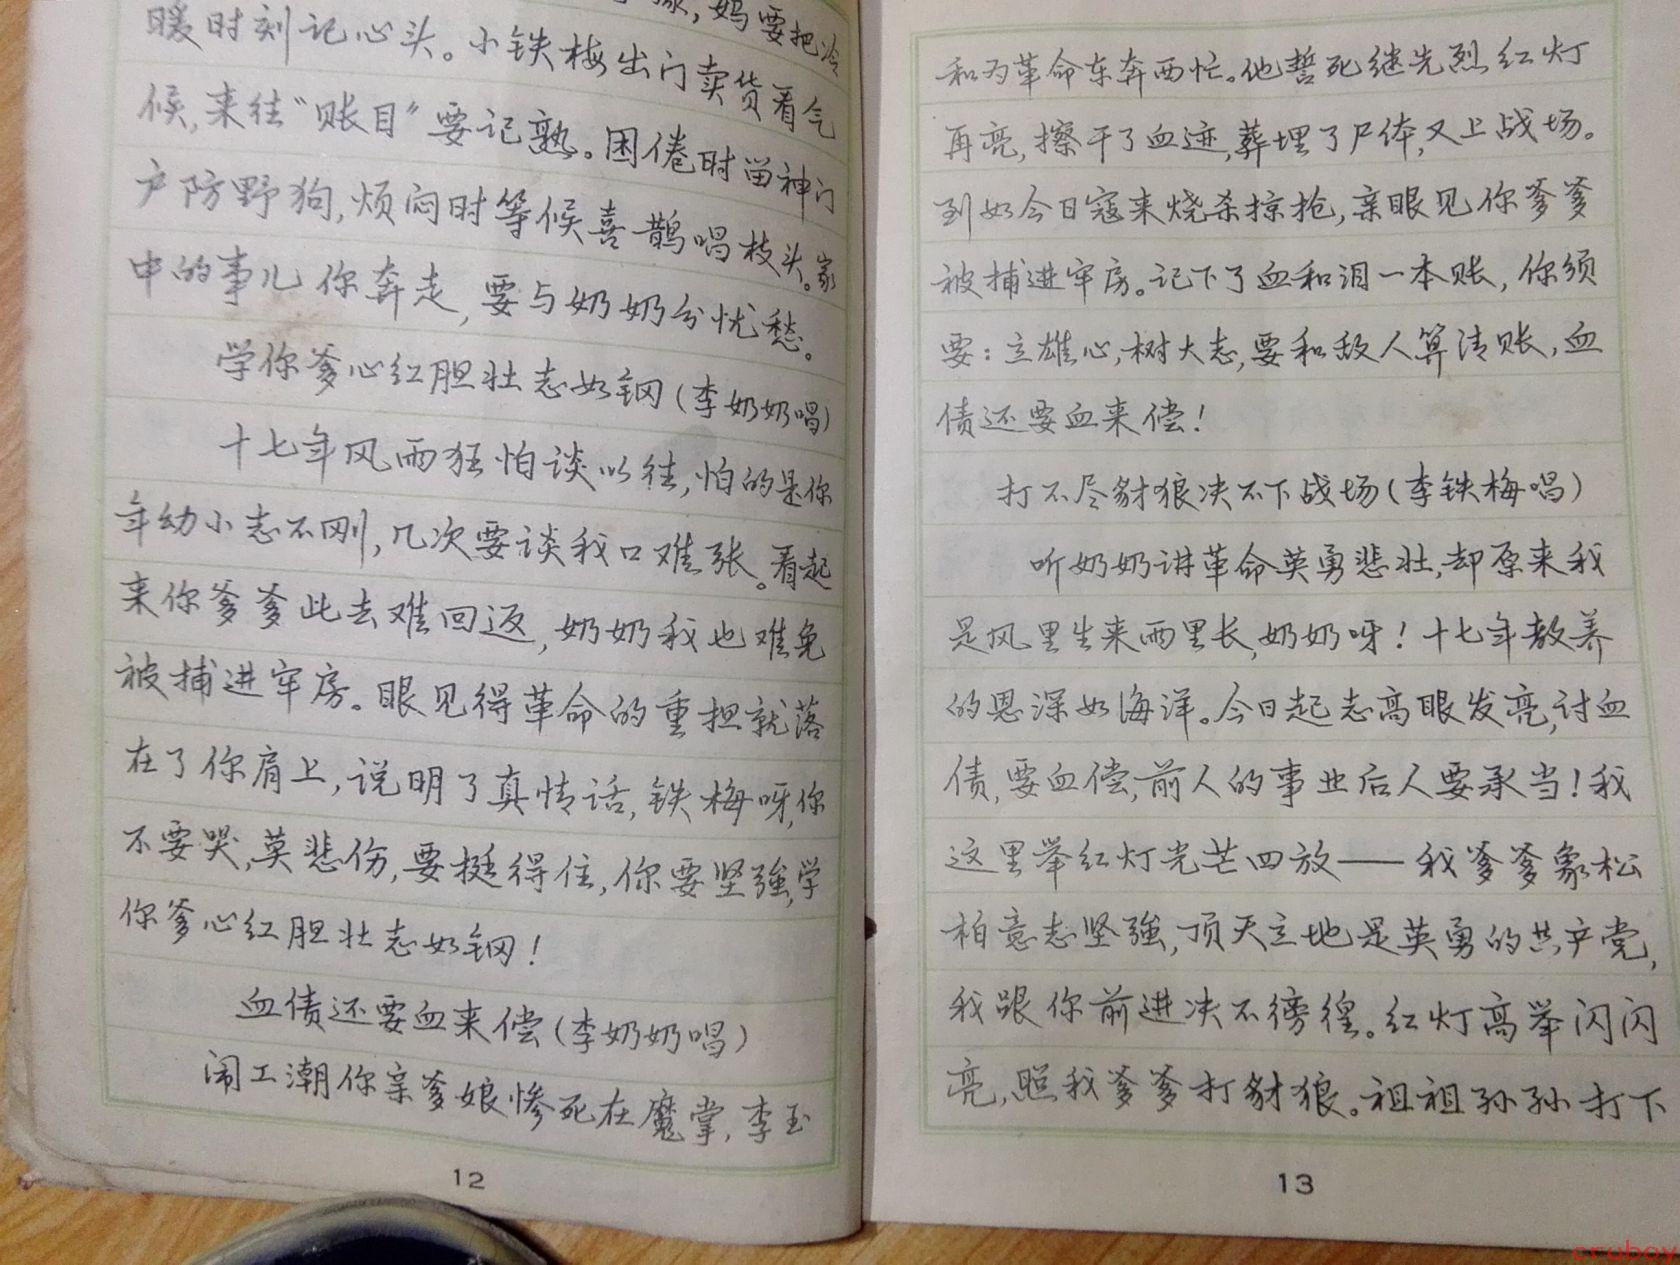 ，妈要把冷
暖时刻记心头。小铁梅出门卖货看气
候，来往“账目”要记熟。困倦时留神门
户防野狗，烦闷时等候喜鹊唱枝头。家
中的事儿你奔走，要与奶奶分忧愁。
学你爹心红胆壮志如钢（李奶奶唱）
十七年风雨狂怕谈以往，怕的是你
年幼小志不刚，几次要谈我口难张。看起
来你爹爹此去难回返，奶奶我也难免
被捕进牢房。眼见得革命的重担就落
在了你肩上，说明了真情话，铁梅呀，你
不要哭，莫悲伤，要挺得住，你要坚强，学
你爹心红胆壮志如钢！
血债还要血来偿（李奶奶唱）
闹工潮你亲爹娘惨死在魔掌，李玉
12
和为革命东奔西忙。他誓死继先烈红灯
再亮，擦干了血迹，葬埋了尸体，又上战场。
到如今日寇来烧杀掠抢，亲眼见你爹爹
被捕进牢房。记下了血和泪一本账，你须
要：立雄心，树大志，要和敌人算清账，血
债还要血来偿！
打不尽豺狼决不下战场（李铁梅唱）
听奶奶讲革命英勇悲壮，却原来我
是风里生来雨里长，奶奶呀！十七年教养
的恩深如海洋。今日起志高眼发亮，讨血
债，要血偿，前人的事业后人要承当！我
这里举红灯光芒四放——我爹爹象松
柏意志坚强，顶天立地是英勇的共产党，
我跟你前进决不徬徨。红灯高举闪闪
亮，照我爹爹打豺狼。祖祖孙孙打下
13
cruboy